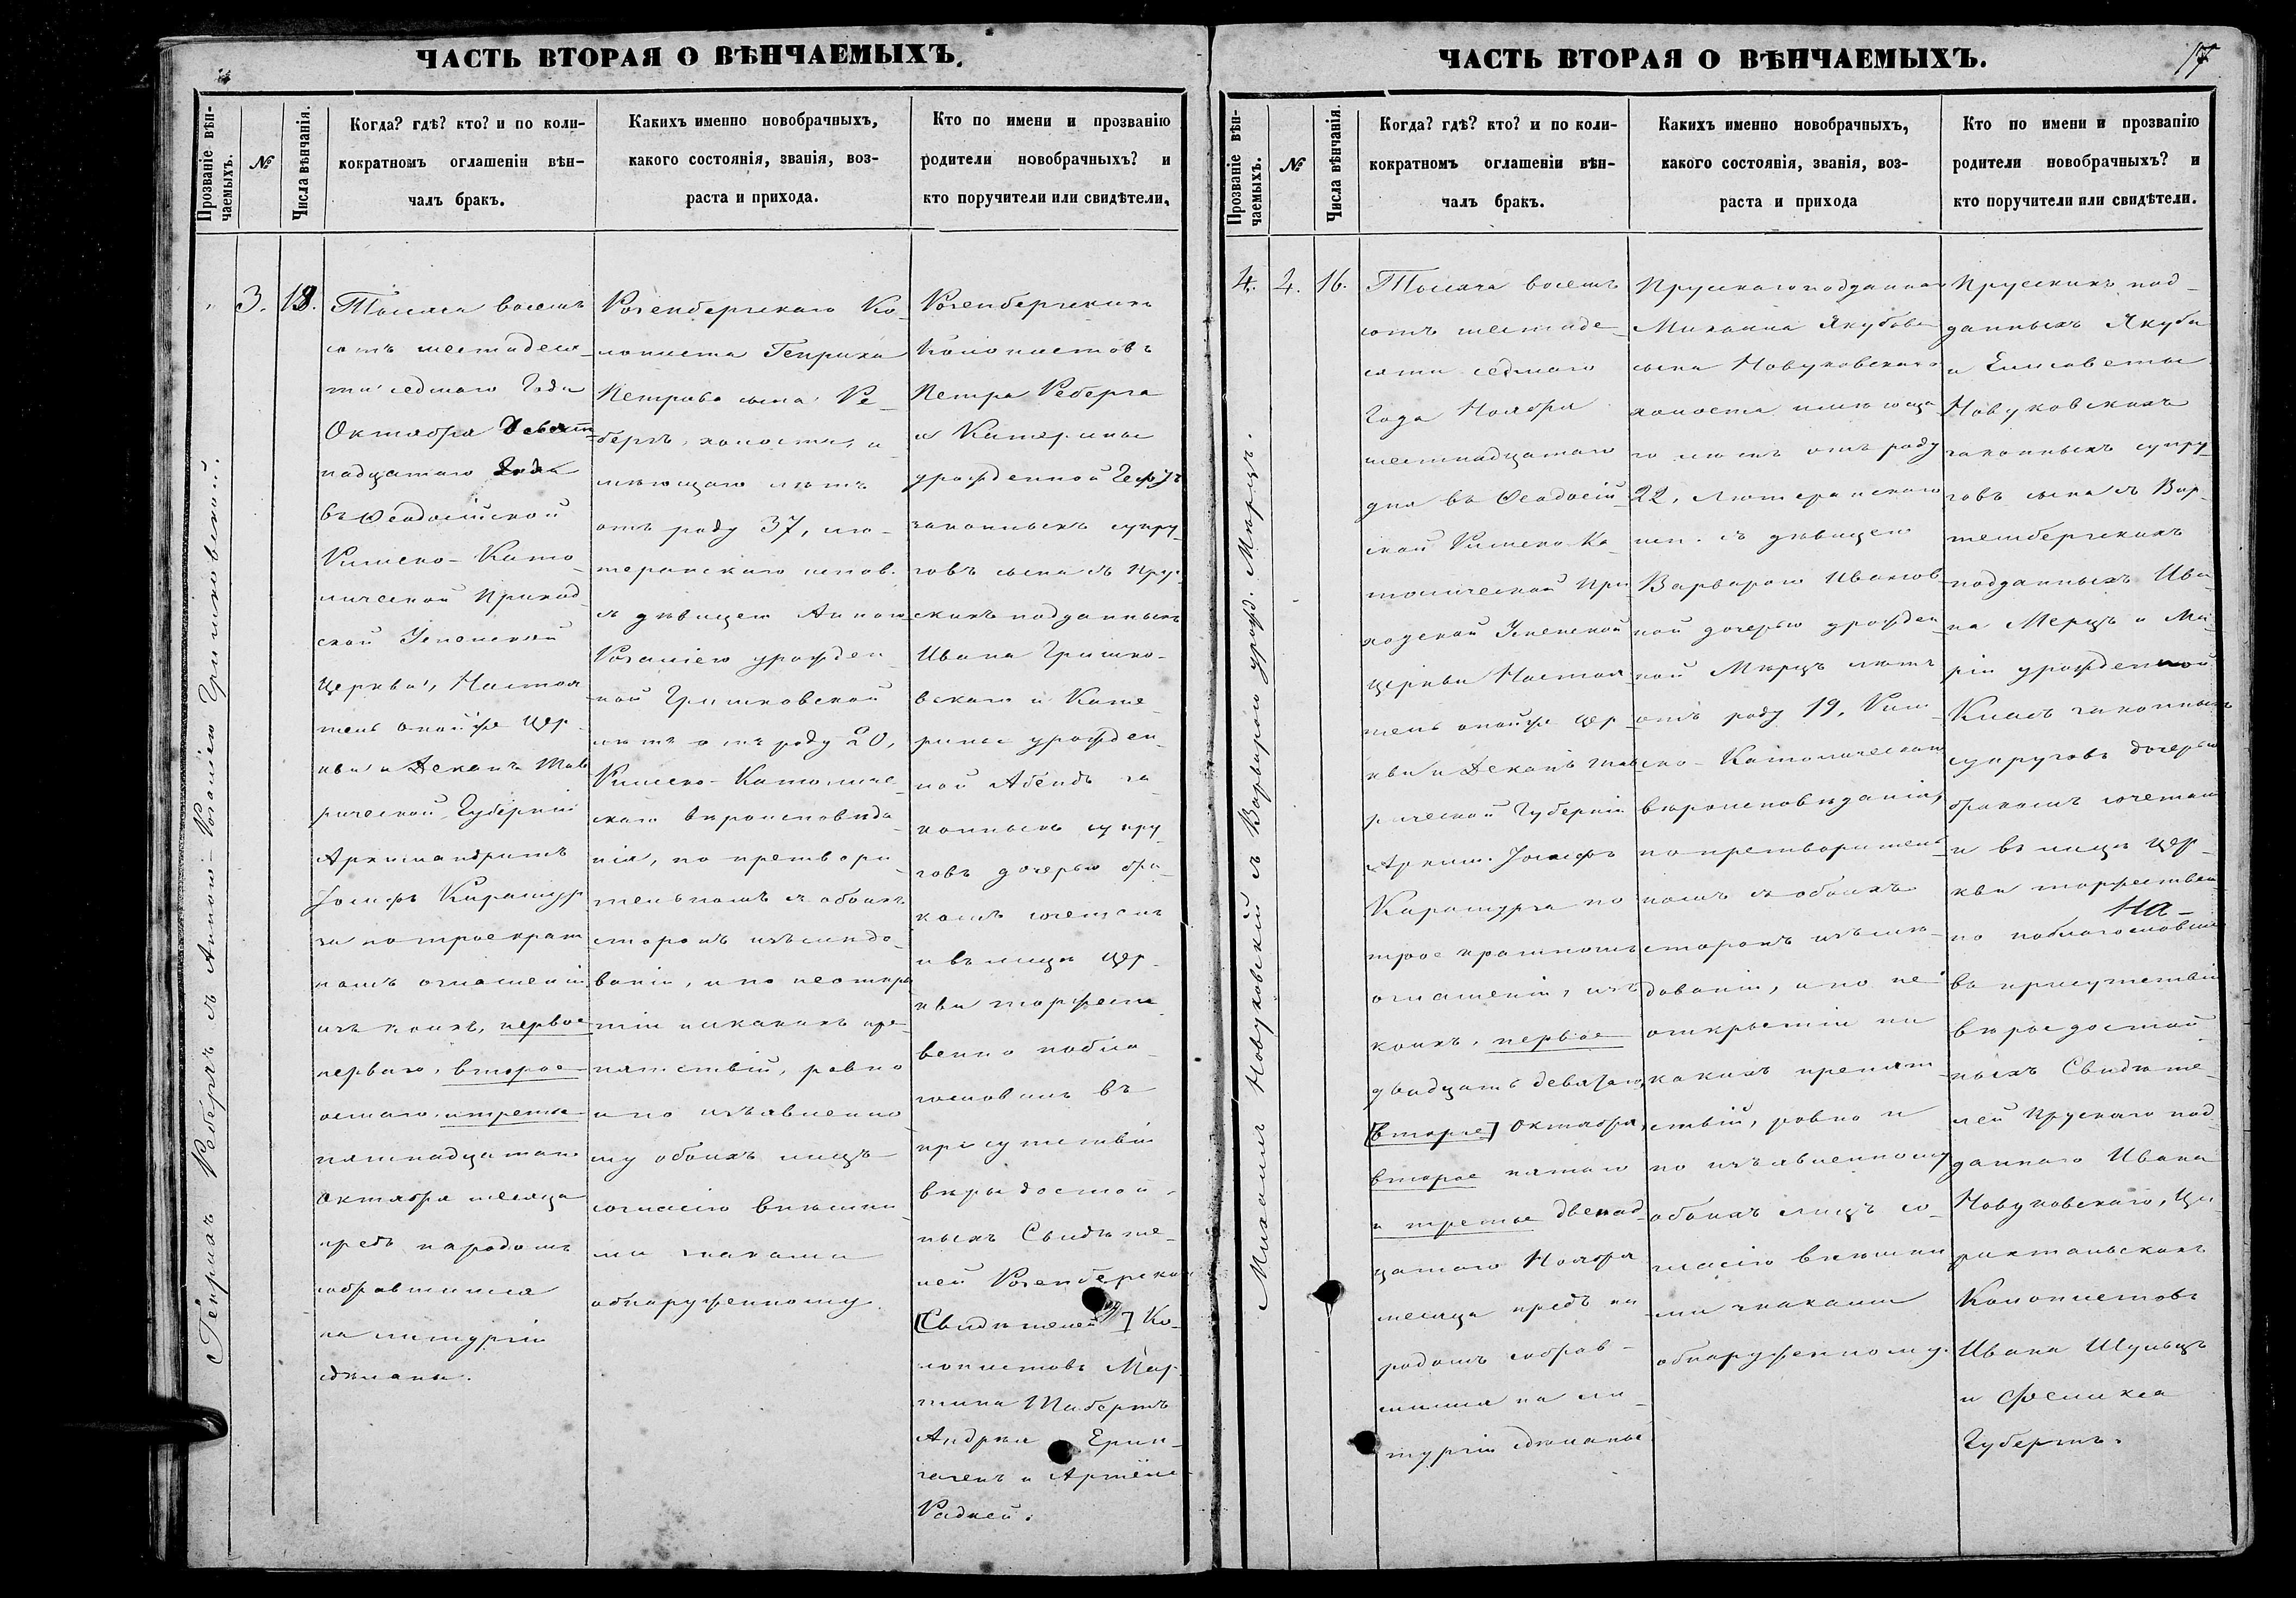 ЧАСТЬ ВТОРАЯ О ВѢНЧАЕМЫХЪ.
Прозваніе вѣн-
чаемыхъ.
№
Числа вѣнчанія.
Когда? гдѣ? кто? и по коли-
кократномъ оглашеніи вѣн-
чалъ бракъ.
Какихъ именно новобрачныхъ,
какого состоянія, званія, воз-
раста и прихода.
Кто по имени и прозванію
родители новобрачныхъ? и
кто поручители или свидѣтели.
Генрихъ Ребергъ съ Анною-Розаліею Гришковской.
3.
19.
Тысяча восемь
сотъ шестьдеся
ти седмаго Года
Октября Девят
надцатаго
въ Ѳеодосійской
Римско-Като
лической Приход
ской Успенской
Церкви, Настоя
тель оной же Цер
кви и Деканъ Тав
рической Губерніи
Архимандритъ
Іосифъ Кирашур
за по троекрат
номъ оглашеніи
изъ коихъ, первое
перваго, второе
осмаго, и третье
пятнадцатаго
Октября месяца
предъ народомъ
собравшимся
на литургіи
сдѣланы.
Розенбергскаго Ко
лониста Генриха
Петрова сына Ре-
бергъ, холоста, и
мѣющаго лѣтъ
отъ роду 37, лю-
теранскаго испов.
съ дѣвицею Анною
Розаліею урожден
ной Гришковской
лѣтъ отъ роду 20,
Римско-Католиче
скаго вѣроисповѣда
нія, по предвари
тельномъ съ обоихъ
сторонъ изслѣдо
ваніи, и по неоткры
тіи никакихъ пре-
пятствій, равно
и по изъявленно
му обоихъ лицъ
согласію внѣшни
ми знаками
обнаруженному.
Розенбергскихъ
Колонистовъ
Петра Реберга
и Катерины
урожденной
законныхъ супру
говъ сына съ Прус
скихъ подданныхъ
Ивана Гришко-
вскаго и Кате
рины урожден
ной Абендъ за
конныхъ супру
говъ дочерью бра
комъ сочеталъ
и въ лицѣ Цер
кви торжест
венно побла
гословилъ въ
присутствіи
вѣры достой
ныхъ Свидѣте
лей Розенбергскихъ
[Свидѣтелей] Ко-
лонистовъ Мар
тина Шибертъ
Андрея Ерин-
и Артёма
Радкей.
ЧАСТЬ ВТОРАЯ О ВѢНЧАЕМЫХЪ.
17
Прозваніе вѣн-
чаемыхъ.
№
Числа вѣнчанія.
Когда? гдѣ? кто? и по коли-
кократномъ оглашеніи вѣн-
чалъ бракъ.
Какихъ именно новобрачныхъ,
какого состоянія, званія, воз-
раста и прихода
Кто по имени и прозванію
родители новобрачныхъ? и
кто поручители или свидѣтели.
Михаилъ Новуковскій съ Варварою урожд. Мерцъ.
4.
4.
16.
Тысяча восемь
сотъ шестьде
сяти седмаго
Года Ноября
шестнадцатаго
дня въ Ѳеодосій
ской Римско Ка
толической При
ходской Успенской
Церкви Настоя
тель оной же Цер
кви и Деканъ Тав
рической Губерніи
Архим. Іосифъ
Кирашурза по
трое кратномъ
оглашеніи, изъ
коихъ, первое
двадцать девятаго
[второе] Октября,
второе пятаго
и третье двенад
цатаго Ноября
месяца предъ на
родомъ собрав-
шимся на ли
тургіи сдѣланы
Прусскаго подданнаго
Михаила Якубова
сына Новуковскаго
холоста имѣюща
го лѣтъ отъ роду
22, лютеранскаго
исп. съ дѣвицею
Варварою Иванов
ной дочерью урожден
ной Мерцъ лѣтъ
отъ роду 19, Рим
ско-Католическаго
вѣроисповѣданія,
по предваритель
номъ съ обоихъ
сторонъ изслѣ
дованіи, и по не
открытіи ни
какихъ препят
ствій, равно и
по изъявленному
обоихъ лицъ со-
гласію внѣшни
ми знаками
обнаруженному.
Прусскихъ под-
данныхъ Якуба
и Елисаветы
Новуковскихъ
законныхъ супру
говъ сына съ Вир
тембергскихъ
подданныхъ Ива
на Мерцъ и Ма
ріи урожденной
законныхъ
супруговъ дочерью
бракомъ сочеталъ
и въ лицѣ Цер-
кви торжествен
но поблагословилъ
на-
въ присутствіи
вѣры достой
ныхъ Свидѣте
лей Прусскаго под
даннаго Ивана
Новуковскаго, Ци
рихтальскихъ
Колонистовъ
Ивана Шульцъ
и Феликса
Губертъ.